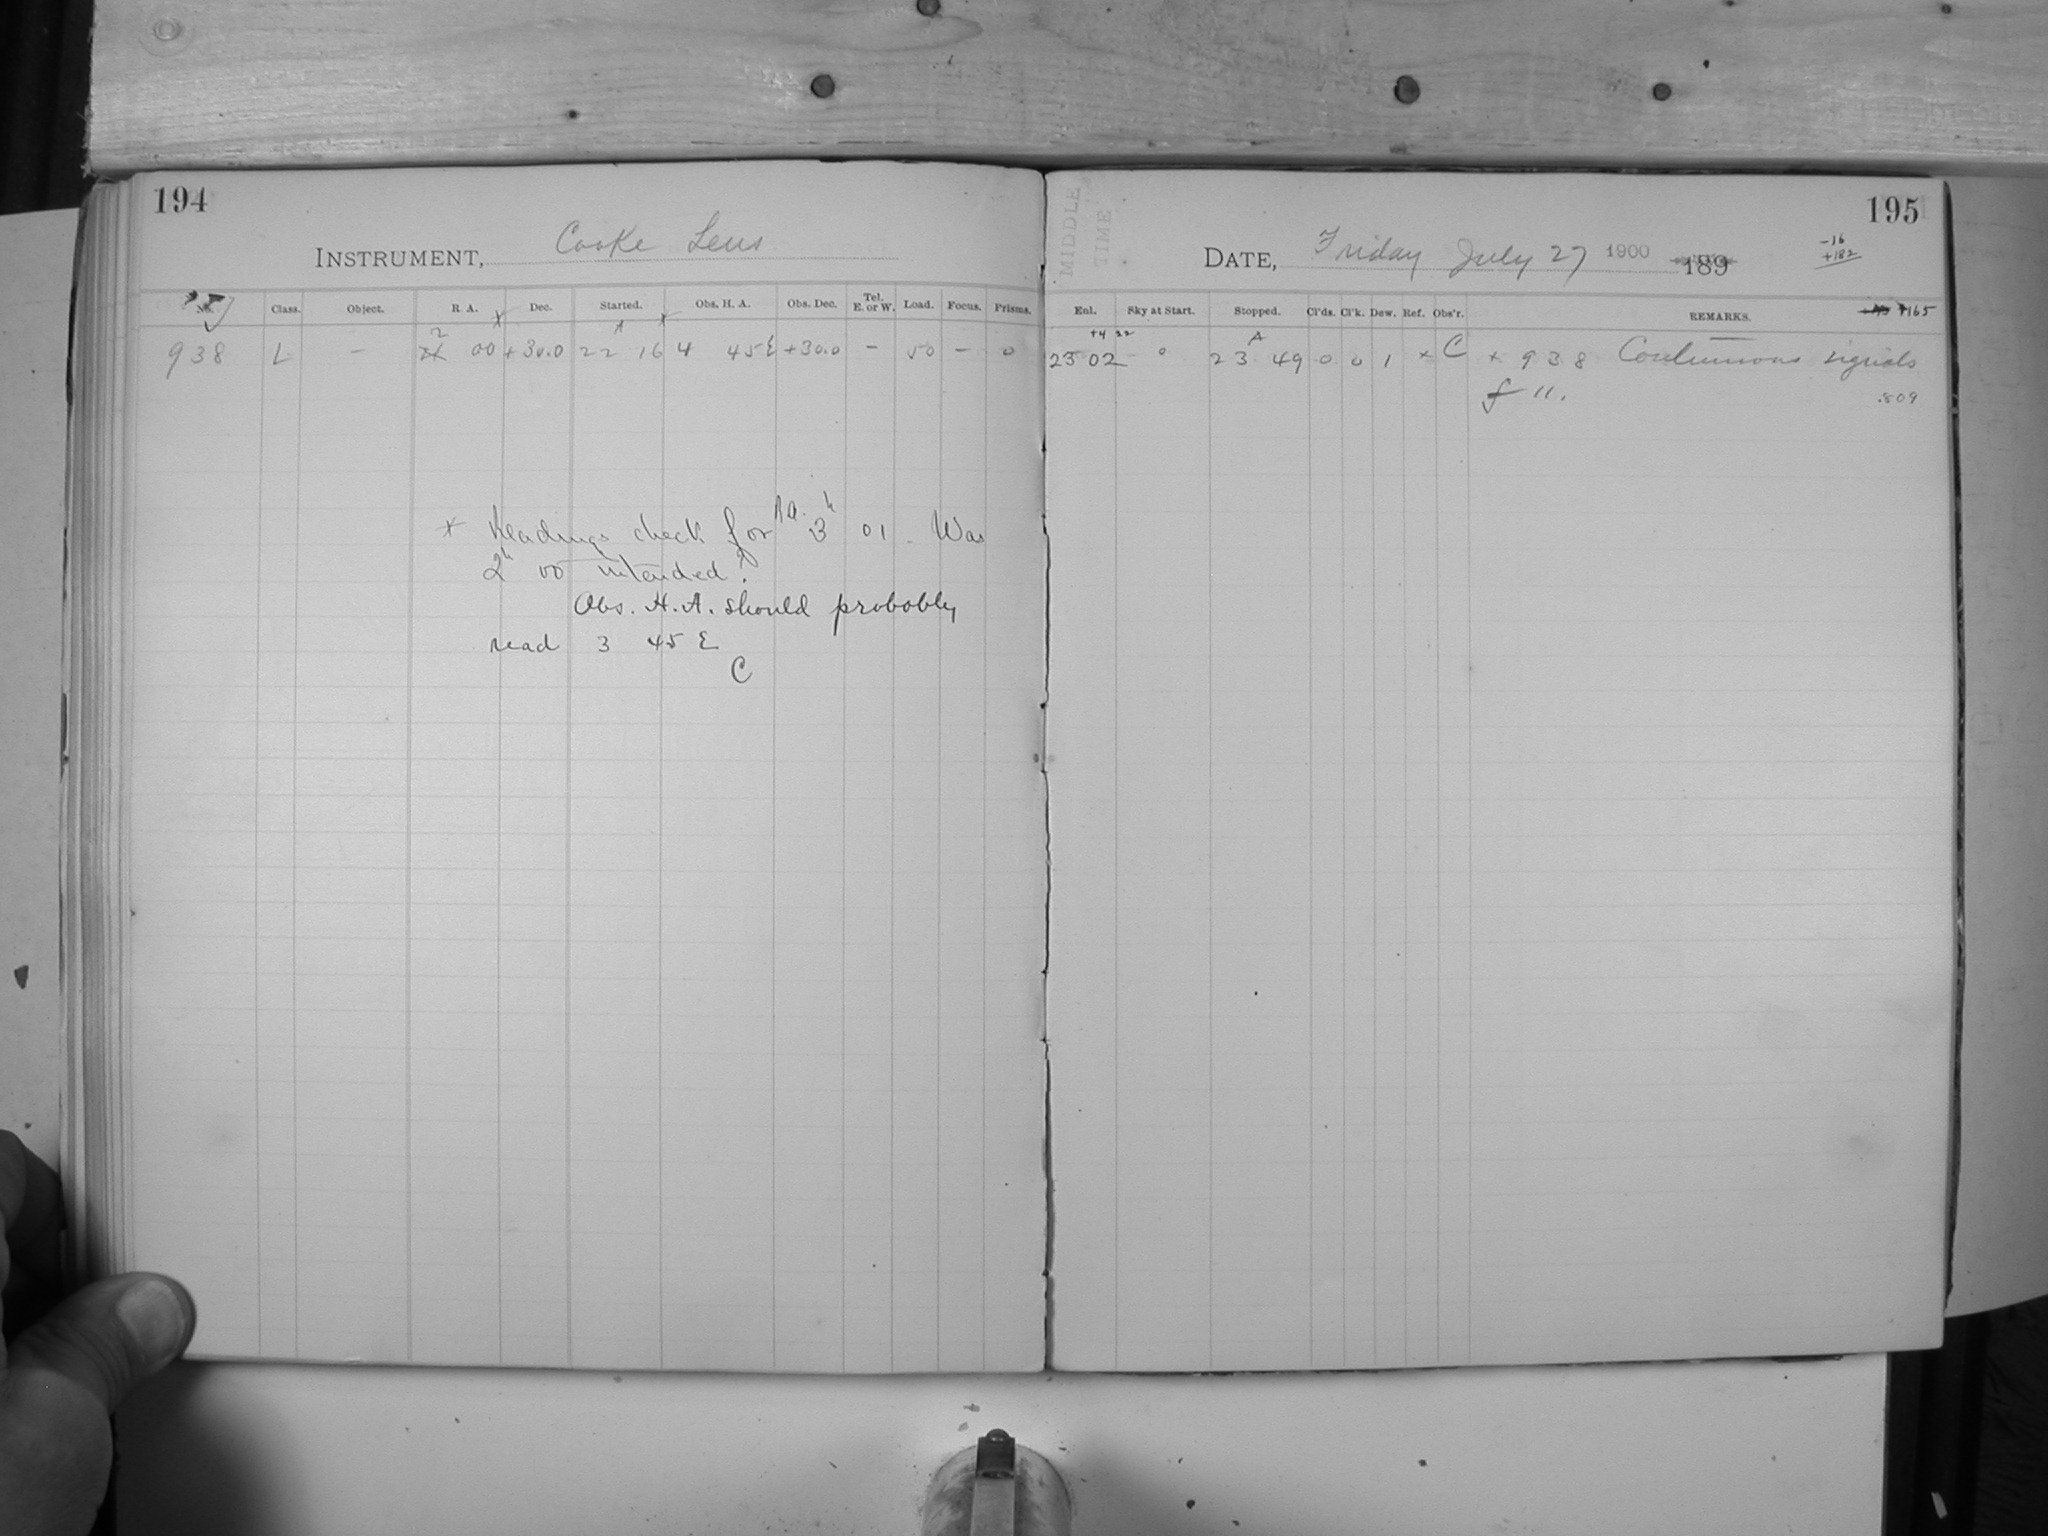 194
INSTRUMENT, Cooke Lens
No. Class. Object. R. A. Dec. Started. Obs. H. A. Obs. Dec. Tel. E. or W. Load. Focus. Prisms.
938 L - 2 00 +30.0 22 16 4 45 E +30.0 - 50 - 0
* Readings check for R.A. 3h 01. Was
2h 00 intended?
Obs. H.A. should probably
read 3 45 E
C
MIDDLE TIME
195
DATE, Friday July 27 1900 189
-16
+182
+165
Enl. Sky at Start. Stopped. Cl'ds. Cl'k. Dew. Ref. Obs'r. REMARKS.
+4 22
23 02 - 0 23 49 0 0 1 × C × 938 Continuous signals
f 11. .809